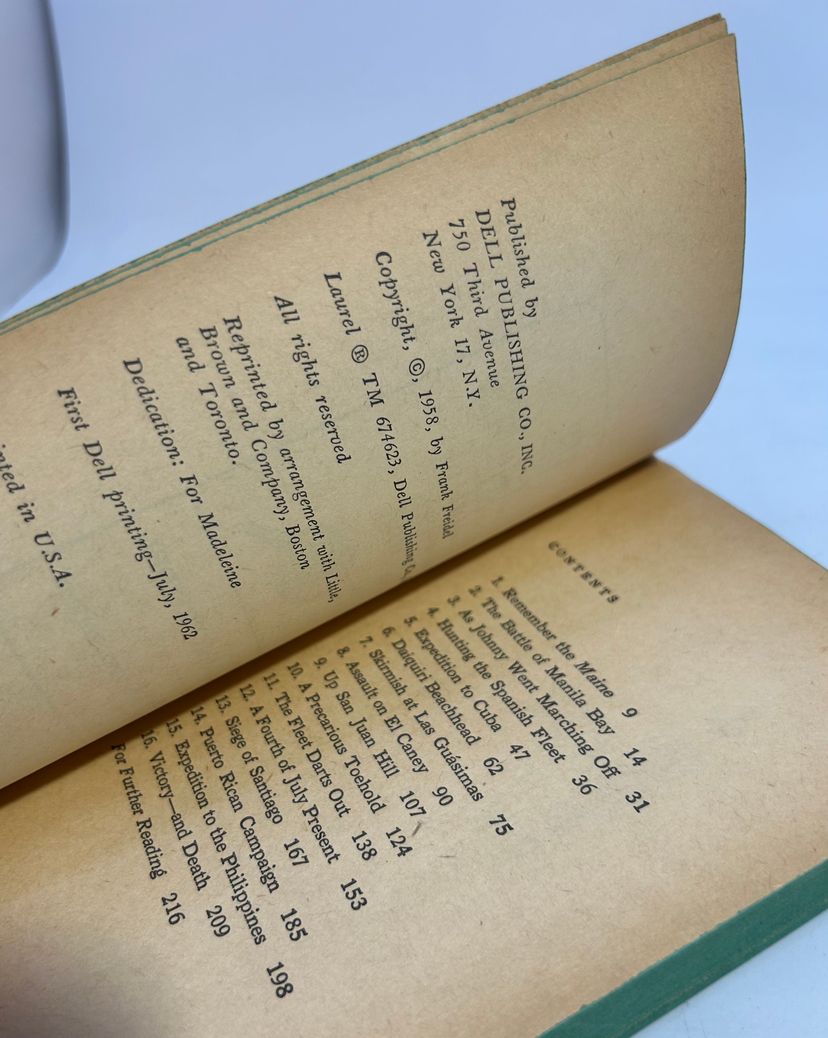 Published by
DELL PUBLISHING CO., INC.
750 Third Avenue
New York 17, N.Y.
Copyright, ©, 1958, by Frank Freidel
Laurel ® TM 674623, Dell Publishing Co.
All rights reserved
Reprinted by arrangement with Little,
Brown and Company, Boston
and Toronto.
Dedication: For Madeleine
First Dell printing—July, 1962
in U.S.A.
CONTENTS
1. Remember the Maine 9
2. The Battle of Manila Bay 14
3. As Johnny Went Marching Off 31
4. Hunting the Spanish Fleet 36
5. Expedition to Cuba 47
6. Daiquiri Beachhead 62
7. Skirmish at Las Guásimas 75
8. Assault on El Caney 90
9. Up San Juan Hill 107
10. A Precarious Toehold 124
11. The Fleet Darts Out 138
12. A Fourth of July Present 153
13. Siege of Santiago 167
14. Puerto Rican Campaign 185
15. Expedition to the Philippines 198
16. Victory—and Death 209
For Further Reading 216